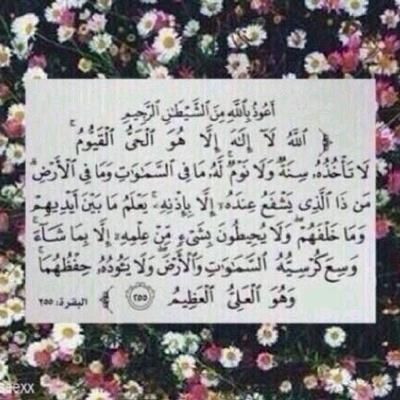 أَعُوذُ بِاللَّهِ مِنَ الشَّيْطَٰنِ الرَّجِيمِ
﴿ ٱللَّهُ لَآ إِلَٰهَ إِلَّا هُوَ ٱلْحَىُّ ٱلْقَيُّومُ ۚ
لَا تَأْخُذُهُۥ سِنَةٌ وَلَا نَوْمٌ ۚ لَّهُۥ مَا فِى ٱلسَّمَٰوَٰتِ وَمَا فِى ٱلْأَرْضِ ۗ
مَن ذَا ٱلَّذِى يَشْفَعُ عِندَهُۥٓ إِلَّا بِإِذْنِهِۦ ۚ يَعْلَمُ مَا بَيْنَ أَيْدِيهِمْ
وَمَا خَلْفَهُمْ ۖ وَلَا يُحِيطُونَ بِشَىْءٍ مِّنْ عِلْمِهِۦٓ إِلَّا بِمَا شَآءَ ۚ
وَسِعَ كُرْسِيُّهُ ٱلسَّمَٰوَٰتِ وَٱلْأَرْضَ ۖ وَلَا يَـُٔودُهُۥ حِفْظُهُمَا ۚ
وَهُوَ ٱلْعَلِىُّ ٱلْعَظِيمُ ٢٥٥ ﴾ البقرة: ٢٥٥